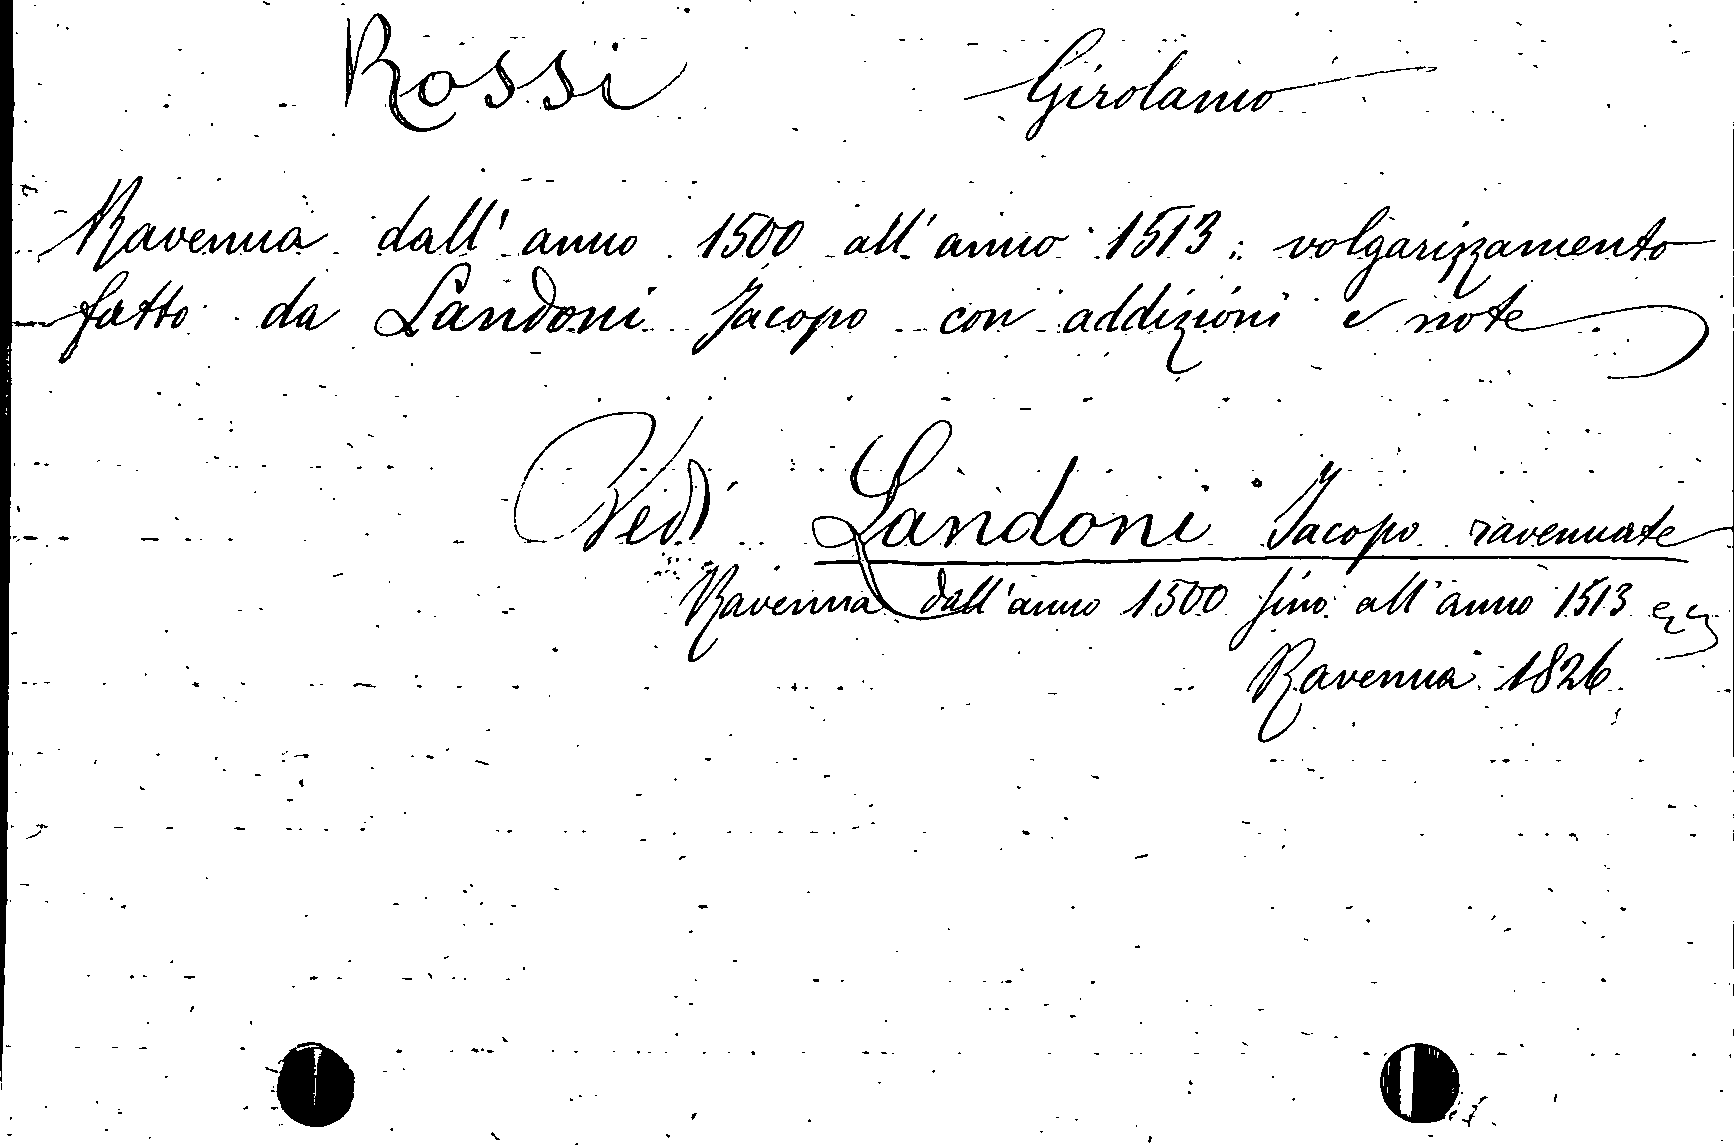 Rossi Girolamo
Ravenna dall'anno 1500 all'anno 1513: volgarizzamento
fatto da Landoni Jacopo con addizioni e note.
Vedi Landoni Jacopo ravennate
Ravenna dall'anno 1500 fino all'anno 1513
Ravenna 1826